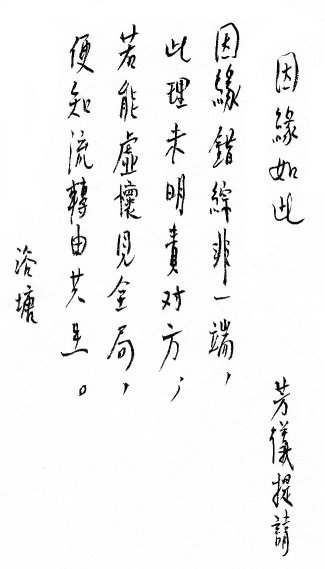 因緣如此
芳儀提請
因緣錯綜非一端，
此理未明責对方；
若能虛懷見全局，
便知流轉由共呈。
浴塘